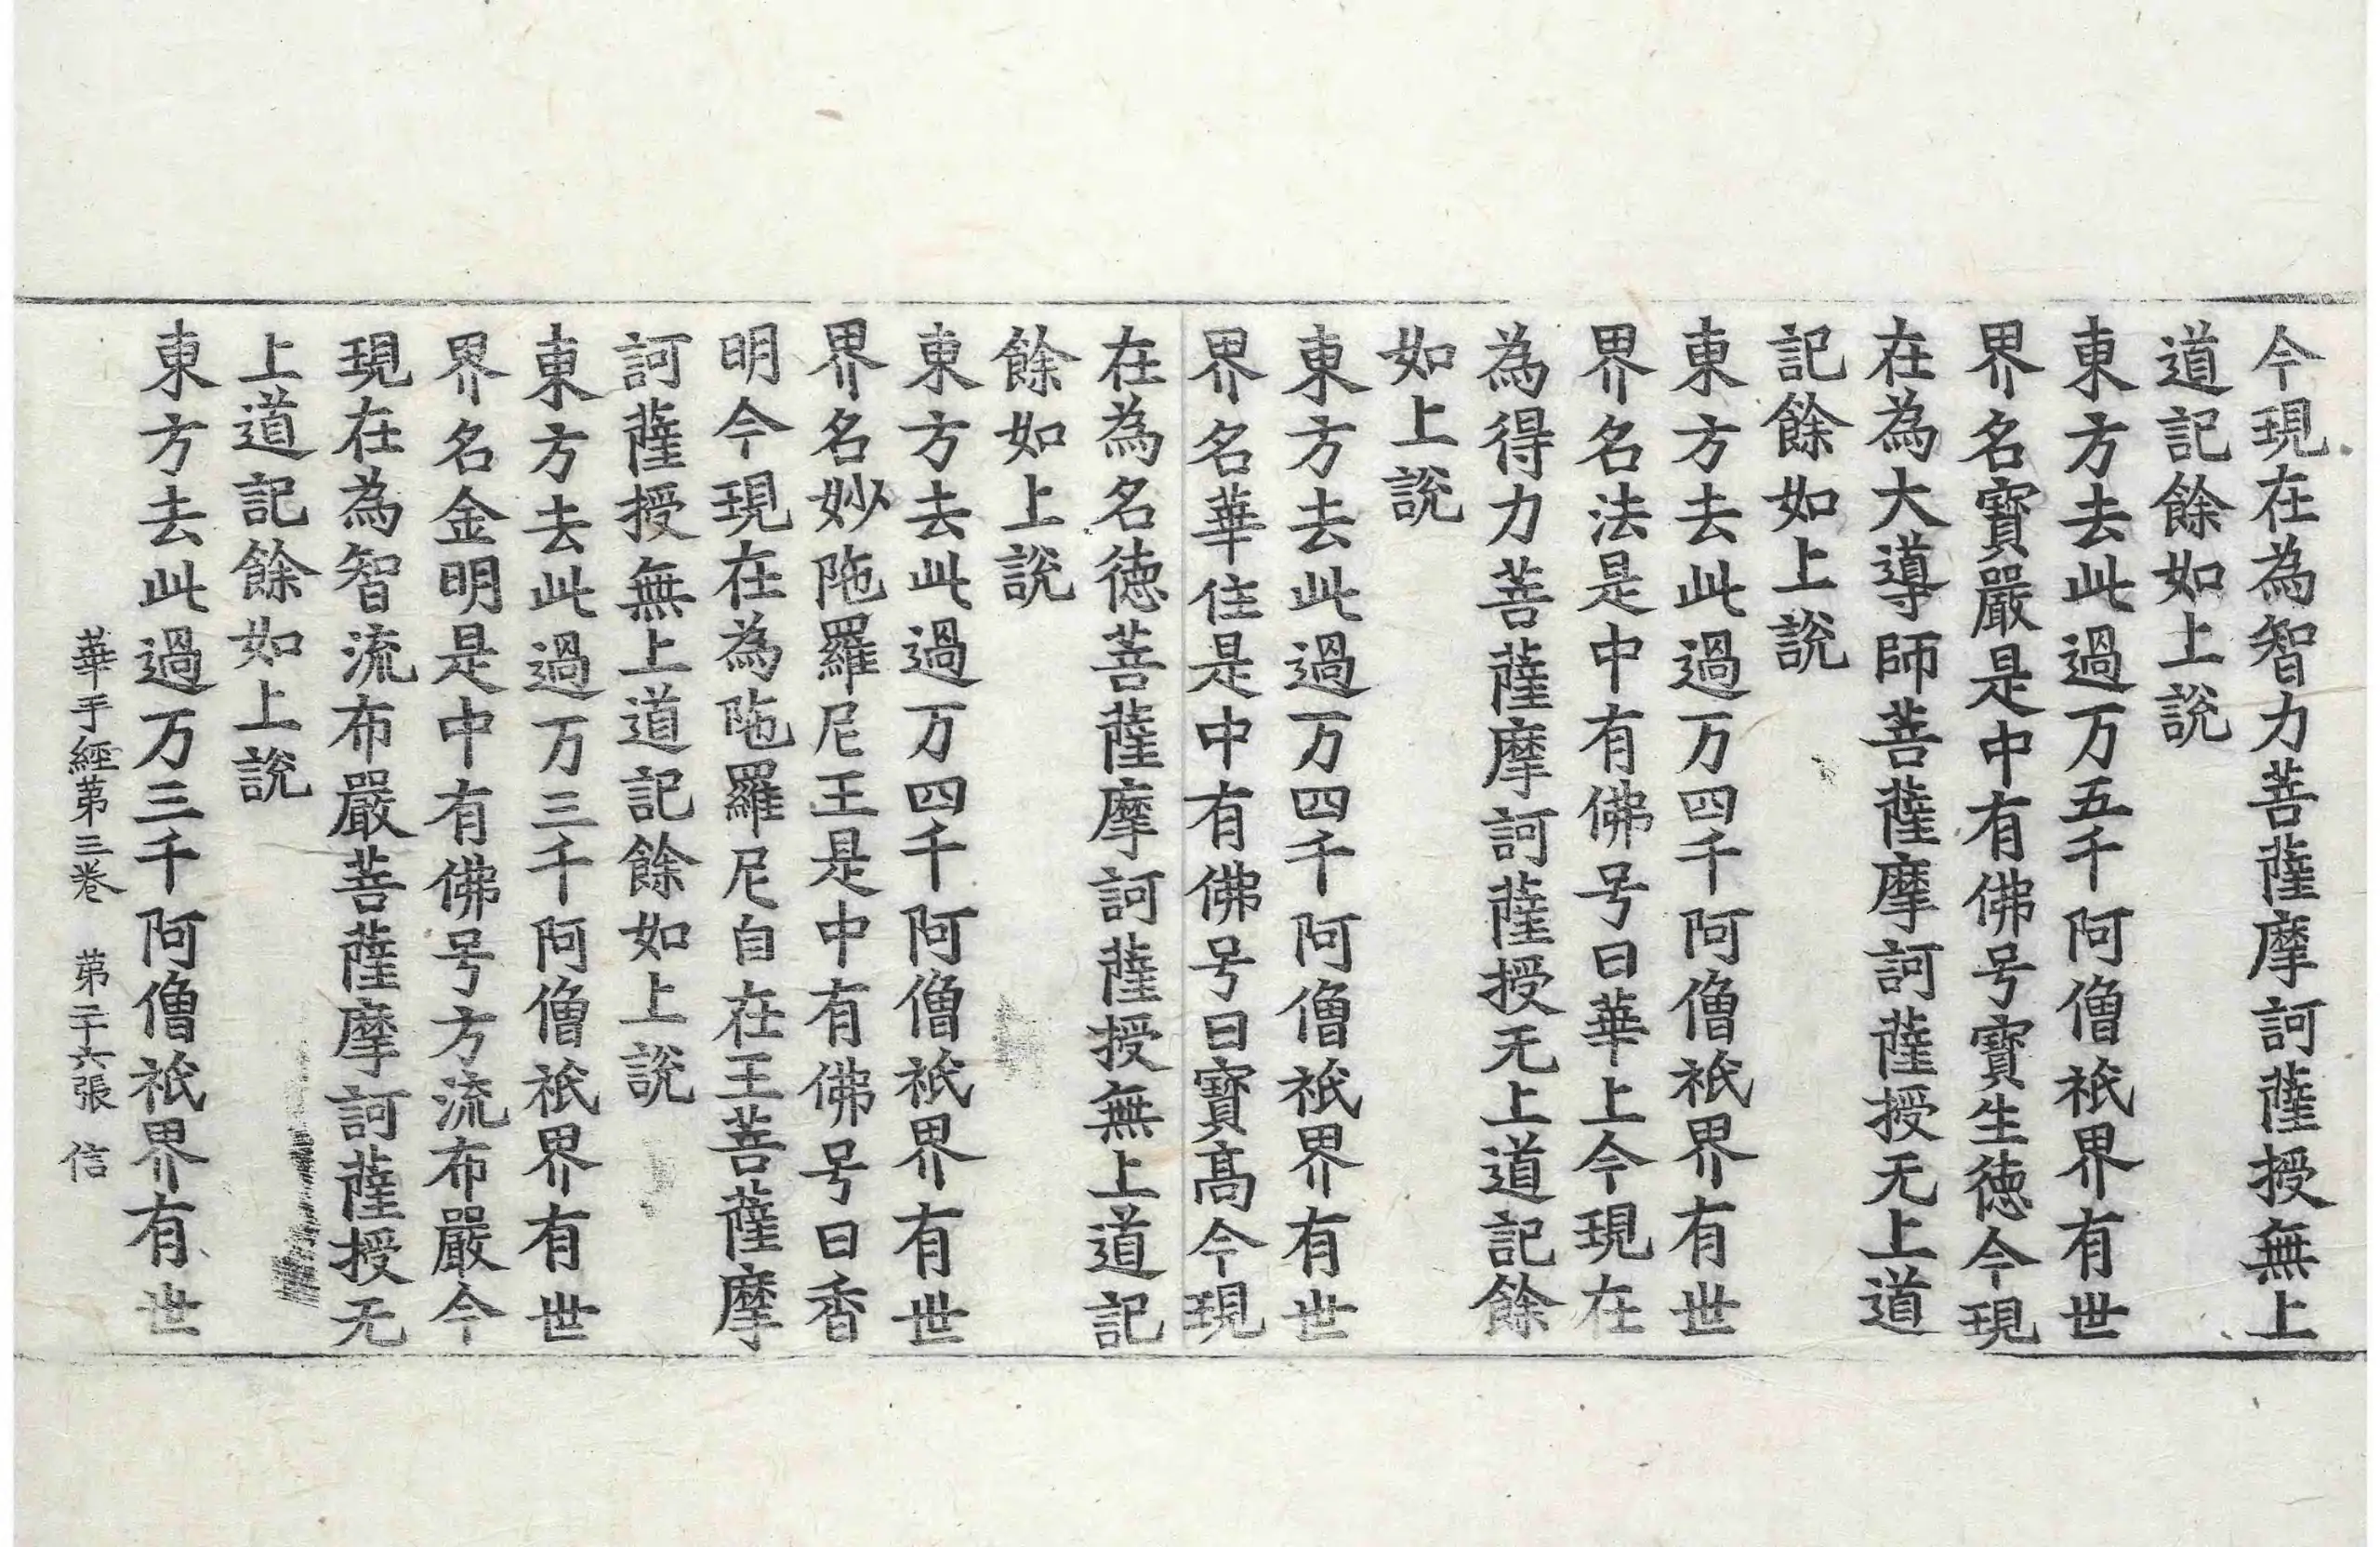 今現在為智力菩薩摩訶薩授無上
道記餘如上說
東方去此過万五千阿僧祇界有世
界名寶嚴是中有佛号寶生徳今現
在為大導師菩薩摩訶薩授无上道
記餘如上說
東方去此過万四千阿僧祇界有世
界名法是中有佛号曰華上今現在
為得力菩薩摩訶薩授无上道記餘
如上說
東方去此過万四千阿僧祇界有世
界名華住是中有佛号曰寶髙今現
在為名徳菩薩摩訶薩授無上道記
餘如上說
東方去此過万四千阿僧祇界有世
界名妙陁羅尼王是中有佛号曰香
明今現在為陁羅尼自在王菩薩摩
訶薩授無上道記餘如上說
東方去此過万三千阿僧祇界有世
界名金明是中有佛号方流布嚴今
現在為智流布嚴菩薩摩訶薩授无
上道記餘如上說
東方去此過万三千阿僧祇界有世
華手經第三卷 第二十六張 信